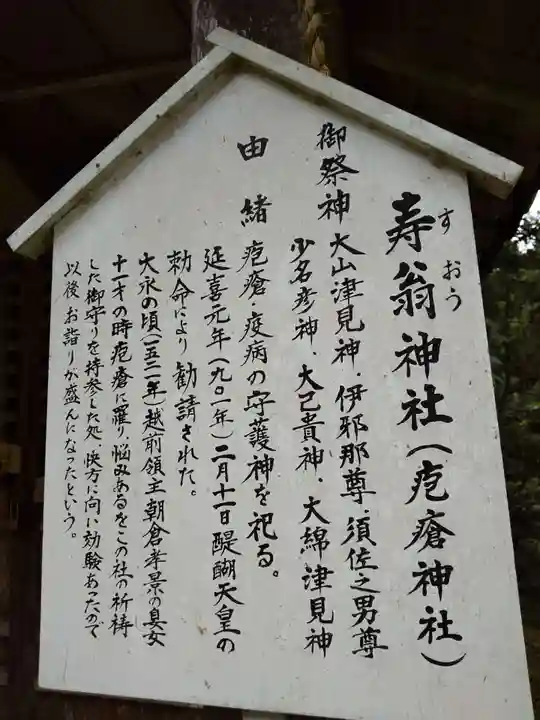 寿翁神社(疱瘡神社)
すおう
御祭神 大山津見神、伊邪那尊、須佐之男尊
少名彦神、大己貴神、大綿津見神
由緒 疱瘡疫病の守護神を祀る。
延喜元年(九〇一年)二月十一日醍醐天皇の
勅命により勧請された。
大永の頃(一五二一年)越前領主朝倉孝景の息女
十一才の時疱瘡に罹り、悩みあるをこの社の祈祷
した御守りを持参した処、快方に向い効験あったので
以後お詣りが盛んになったという。